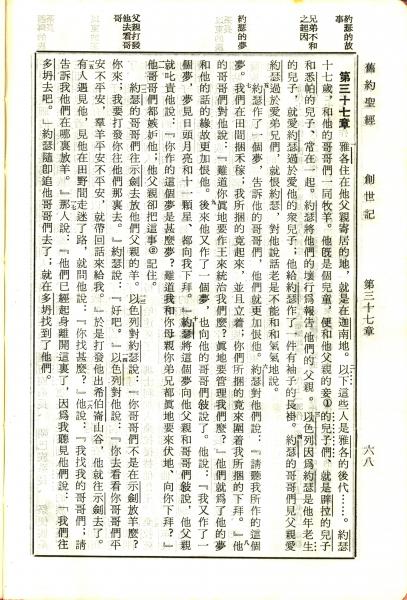 舊約聖經　創世記　第三十七章　六八
約瑟的故事
兄弟不和之起因
第三十七章　雅各住在他父親寄居的地、就是在迦南地。以下這些人是雅各的後代……。約瑟
十七歲，和他的哥哥們一同牧羊。他旣是個兒童，便和他父親的妾①的兒子們，就是辟拉的兒子
和悉帕的兒子、常在一起。約瑟將他們的壞行爲報告他們的父親。以色列因爲約瑟是他年老生
的兒子，就愛約瑟過於愛他的衆兒子；他給約瑟作了一件有袖子的長褂。約瑟的哥哥們見父親愛
約瑟過於愛弟兄們，就恨約瑟，對他說話老是不能和和氣氣地說。
約瑟的夢
約瑟作了一個夢，告訴他的哥哥們，他們就更加恨他。約瑟對他們說：『請聽我所作的這個
夢。我們在田間捆禾稼；我所捆的竟起來，並且立着；你們所捆的竟來圍着我所捆的下拜。』他
的哥哥們對他說：『難道你眞地要作王來統治我們麼？眞地要管理我們麼？』他們就爲了他的夢
和他的話的緣故更加恨他。後來他又作了一個夢，也向他的哥哥們敘說了。他說：『我又作了一
個夢，夢見日頭月亮和十一顆星、都向我下拜。』約瑟將這個夢向他父親和哥哥們敘說，他父親
就叱責他說：『你作的這個夢是甚麼夢？難道我和你母親你弟兄都眞地要來伏地、向你下拜？』
他哥哥們都嫉妒他；他父親卻把這事記住。
父親打發他去看哥哥
約瑟的哥哥們往示劍去放他們父親的羊。以色列對約瑟說：『你哥哥們不是在示劍放羊麼？
你來；我要打發你往他們那裏去。』約瑟說：『好吧。』以色列對他說：『你去看看你哥哥們平
安不平安，羣羊平安不平安，就帶回話來給我。』於是打發他出希伯崙山谷，他就往示劍去了。
有人遇見他，見他在田野間走迷了路，就問他說：『你找甚麼？』他說：『我找我的哥哥們；請
告訴我他們在哪裏放羊。』那人說：『他們已經起身離開這裏了，因爲我聽見他們說：「我們往
多坍去吧。」』約瑟隨卽追他哥哥們去了；就在多坍找到了他們。